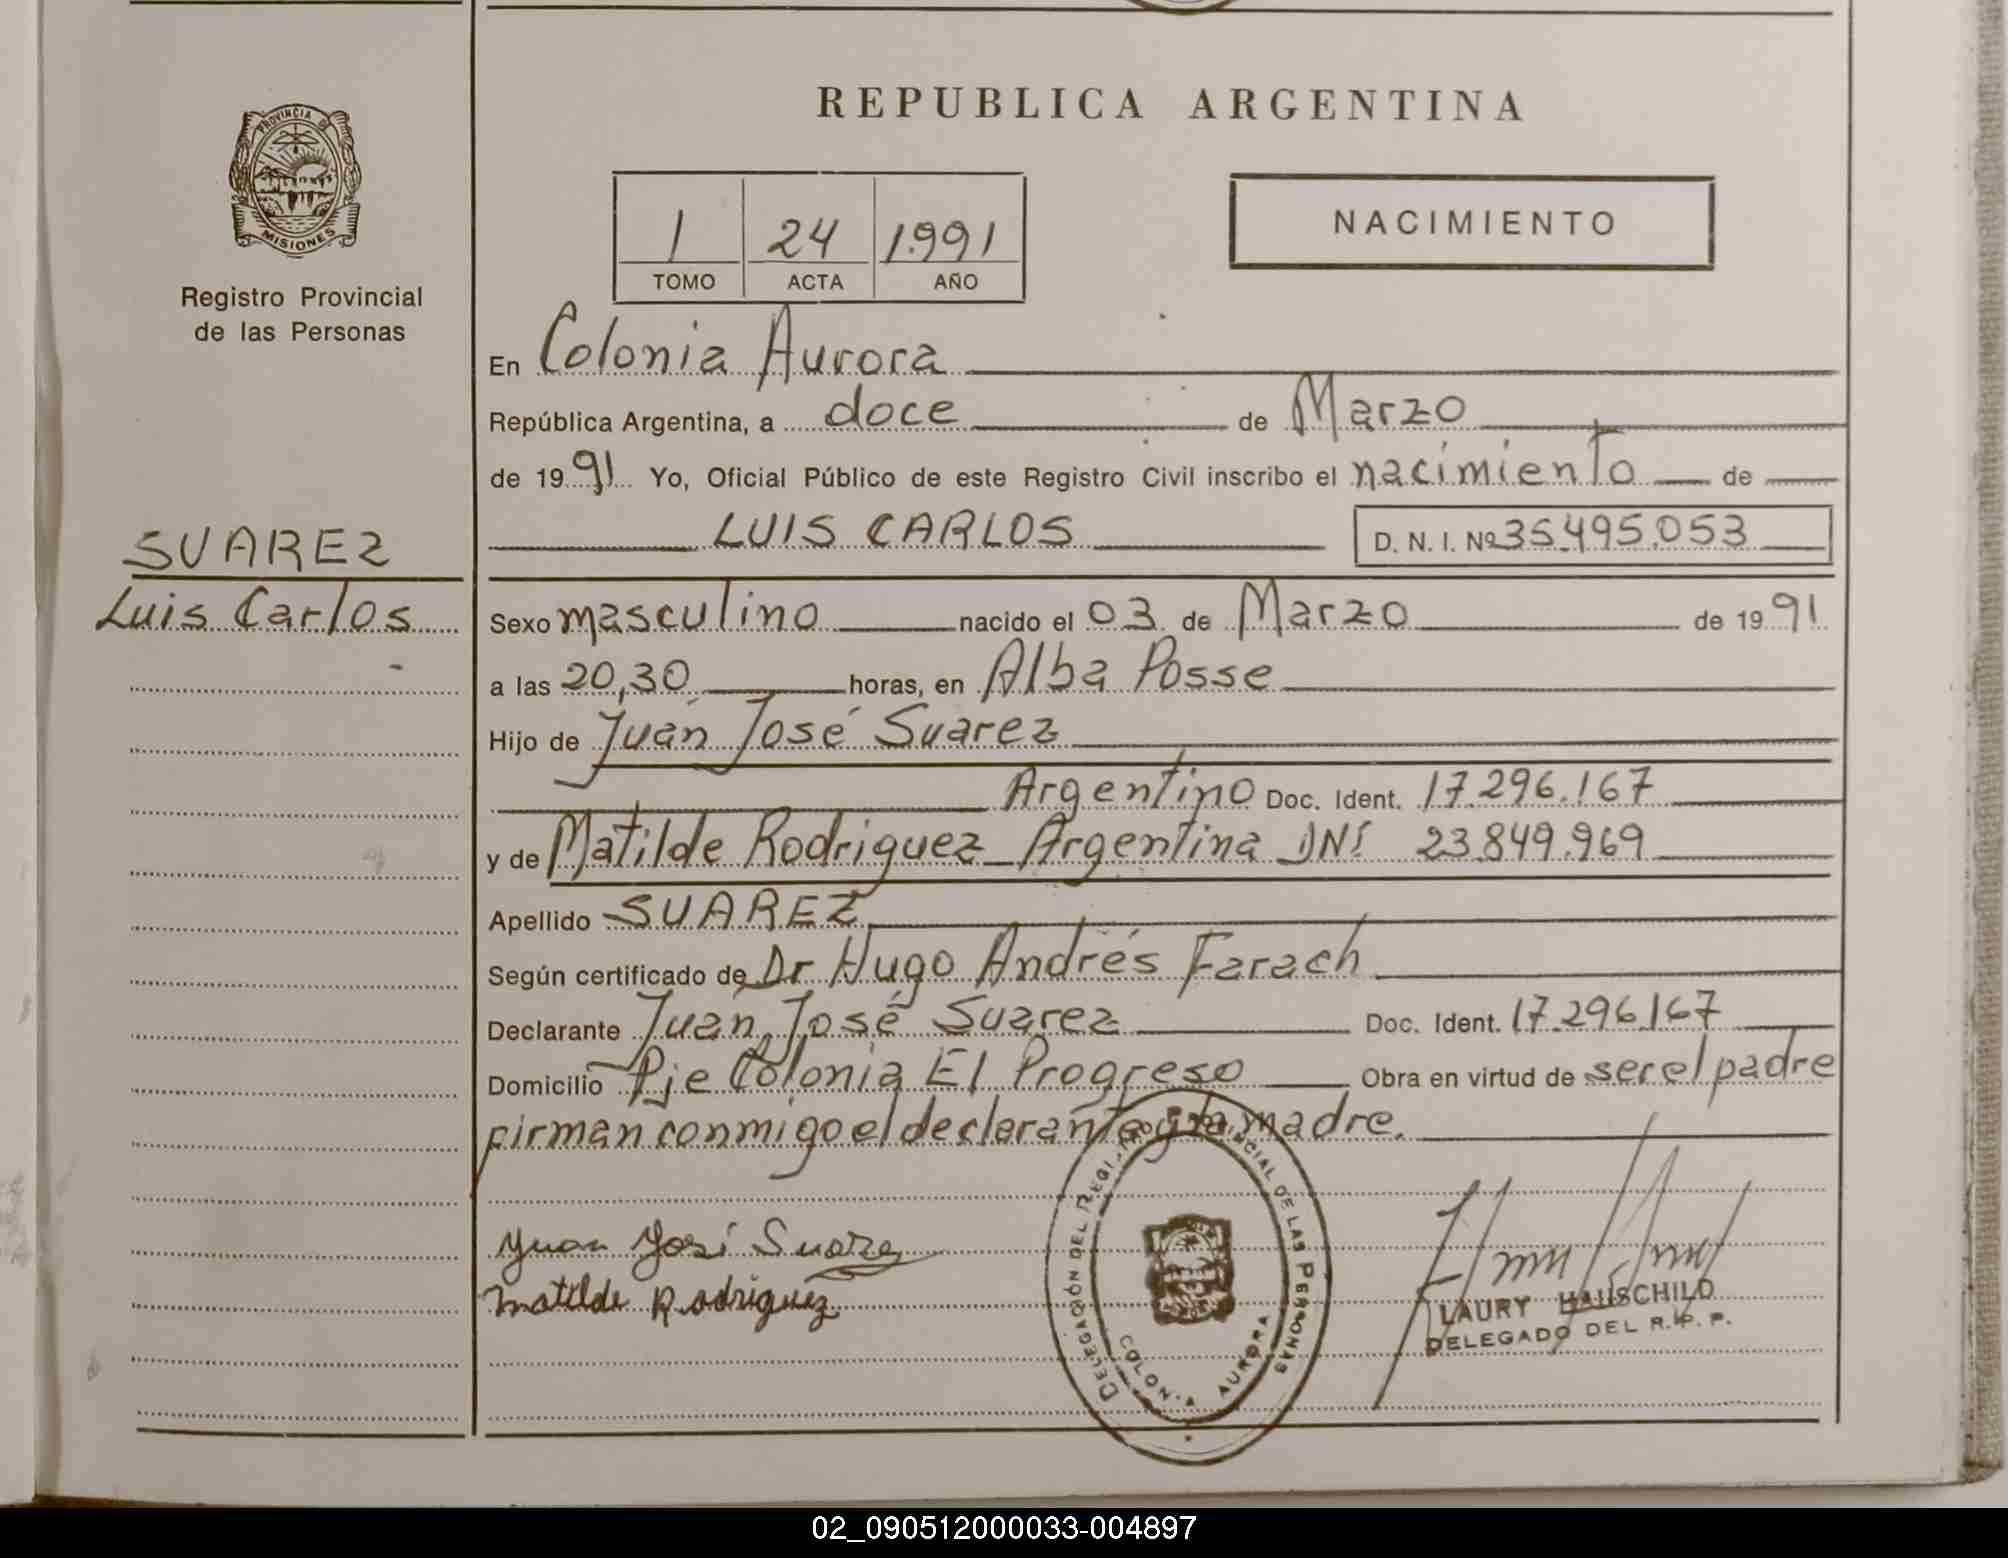 REPUBLICA ARGENTINA
PROVINCIA DE
MISIONES
Registro Provincial
de las Personas
NACIMIENTO
1 24 1.991
TOMO ACTA AÑO
En Colonia Aurora
República Argentina, a doce de Marzo
de 1991 Yo, Oficial Público de este Registro Civil inscribo el nacimiento de
LUIS CARLOS D. N. I. Nº 35.495.053
SUAREZ
Luis Carlos
Sexo masculino nacido el 03 de Marzo de 1991
a las 20,30 horas, en Alba Posse
Hijo de Juan José Suarez
Argentino Doc. Ident. 17.296.167
y de Matilde Rodriguez Argentina DNI 23.849.969
Apellido SUAREZ
Según certificado de Dr Hugo Andrés Farach
Declarante Juan José Suarez Doc. Ident. 17.296.167
Domicilio Pje Colonia El Progreso Obra en virtud de ser el padre
firman conmigo el declarante y la madre.
Juan José Suarez
Matilde Rodriguez
DELEGACIÓN DEL REGISTRO PROVINCIAL DE LAS PERSONAS
COLONIA AURORA
LAURY HAUSCHILD
DELEGADO DEL R. P. P.
02_090512000033-004897